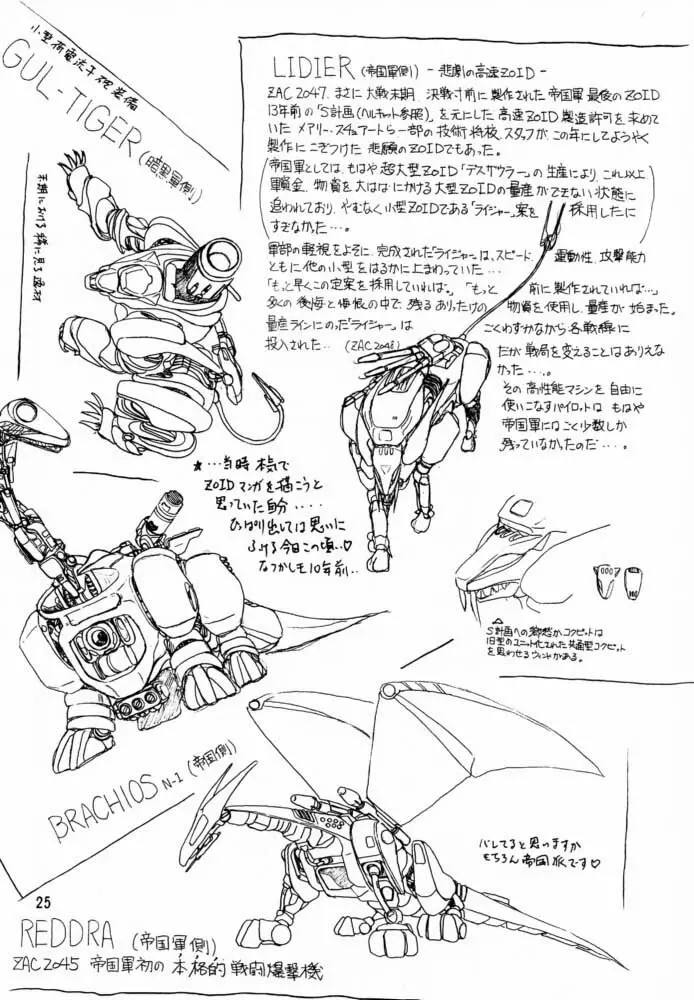 小型荷電流子砲装備
GUL-TIGER (暗黒軍側)
LIDIER (帝国軍側) - 悲劇の高速ZOID -
ZAC 2047. まさに大戦末期、決戦寸前に製作された帝国軍最後のZOID
13年前の「S計画(ヘルキャット参照)」を元にした高速ZOID製造許可を求めて
いた メアリー・スチュアートら一部の技術将校、スタッフが、この年にしてようやく
製作にこぎつけた 悲願のZOIDでもあった。
帝国軍としては、もはや超大型ZOID「デスザウラー」の生産により、これ以上
軍資金、物資を大はばにかける大型ZOIDの量産ができない状態に
追われており、やむなく小型ZOIDである「ライジャー」案を採用したに
すぎなかった…。
軍部の軽視をよそに、完成された「ライジャー」は、スピード、運動性、攻撃能力
ともに他の小型をはるかに上まわっていた…
「もっと早くこの定案を採用していれば。」「もっと前に製作されていれば…」
多くの後悔と悔恨の中で、残るありったけの物資を使用し、量産が始まった。
量産ラインにのった「ライジャー」はごくわずかながら各戦線に
投入された‥ (ZAC2048)
だが戦局を変えることはありえな
かった…。
その高性能マシンを自由に
使いこなすパイロットは もはや
帝国軍にはごく少数しか
残っていなかったのだ…。
★…当時 本気で
ZOIDマンガを描こうと
思っていた自分‥‥
ひっぱり出しては思いに
ふける今日この頃‥♡
なつかしき10年前‥
S計画への郷愁か コクピットは
旧型のユニット化された共通型コクピット
を思わせるウィンドがある。
BRACHIOS N-1 (帝国側)
バレてると思いますが
もちろん帝国派です♡
25
REDDRA (帝国軍側)
ZAC2045 帝国軍初の本格的戦闘爆撃機